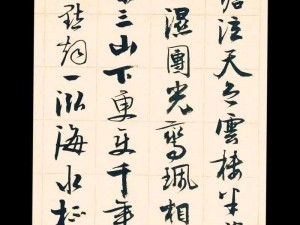 泣天色雲樓半
濕團光鸞珮相
三山下更變千年
點烟一泓海水杯